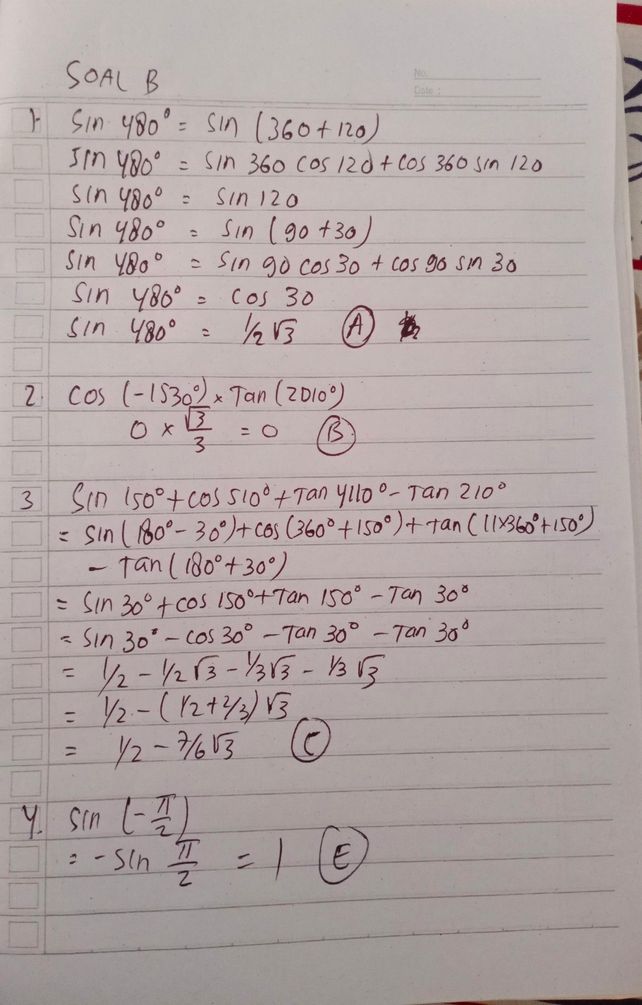 No.
Date :
SOAL B
1. Sin 480° = sin (360 + 120)
sin 480° = sin 360 cos 120 + cos 360 sin 120
sin 480° = sin 120
Sin 480° = sin (90 + 30)
sin 480° = sin 90 cos 30 + cos 90 sin 30
Sin 480° = cos 30
Sin 480° = 1/2 √3 (A)
2. cos (-1530°) × Tan (2010°)
0 × √3/3 = 0 (B)
3 Sin 150° + cos 510° + Tan 4110° - Tan 210°
= sin (180° - 30°) + cos (360° + 150°) + Tan (11×360° + 150°)
- Tan (180° + 30°)
= sin 30° + cos 150° + Tan 150° - Tan 30°
= sin 30° - cos 30° - Tan 30° - Tan 30°
= 1/2 - 1/2 √3 - 1/3 √3 - 1/3 √3
= 1/2 - (1/2 + 2/3) √3
= 1/2 - 7/6 √3 (C)
4. sin (-π/2)
= - sin π/2 = 1 (E)